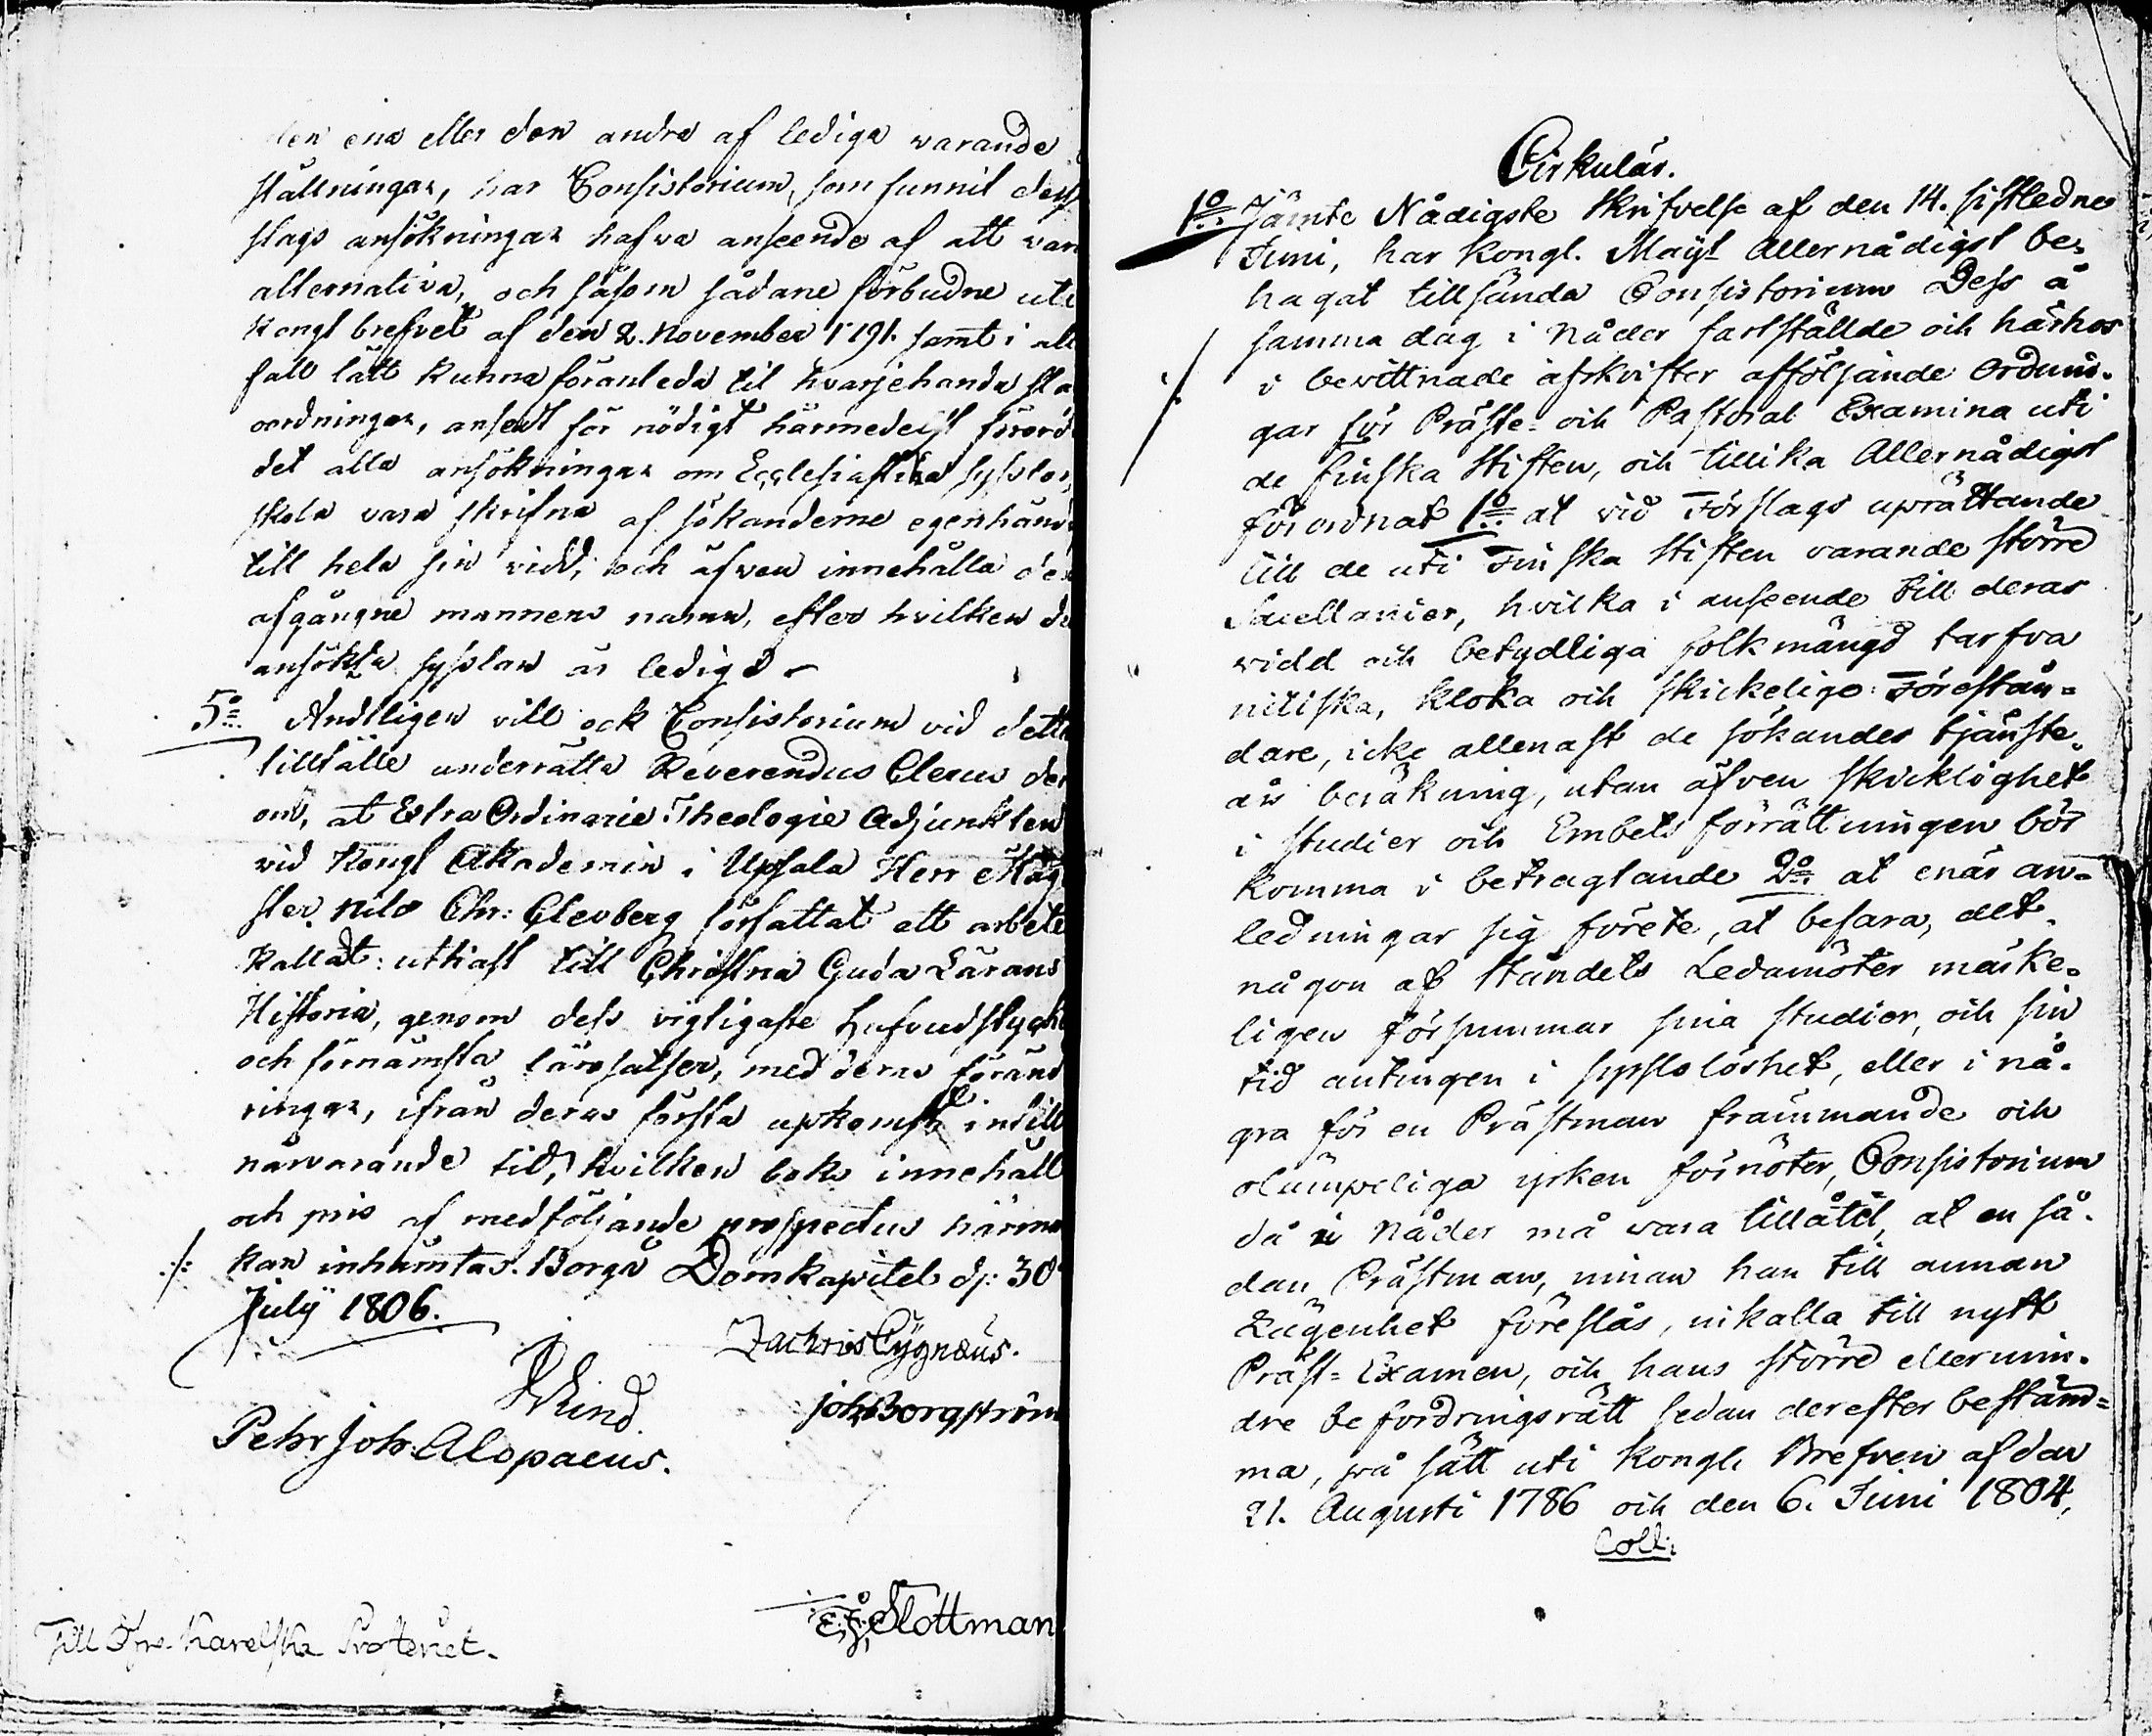 den ena eller den andra af lediga varande
ställningar, har Consistorium, som funnit dess
slags ansökningar hafva anseende af att vara
alternativa, och såsom sådane förbudne uti
Kongl brefvet af den 2. November 1791. samt i all
fall lätt kunna föranleda til hvarjehanda
oordningar, ansedt för nödigt härmedelst förord
det alla ansökningar om Ecclesiastika sysslor,
skola vara skrifna af sökanderne egenhändi
till hela sin vidd, och äfven innehålla den
afgångne mannens namn, efter hvilken de
ansökta sysslan är ledig.
5:o Andtligen vill ock Consistorium vid detta
tillfälle underrätta Reverendus Clerus der
om, at Extra Ordinarie Theologie Adjunkten
vid Kongl Akademin i Upsala Herr Mag
ster Nils Chr: Clevberg författat ett arbete
Kalladt: utkast till Christna Guda Lärans
Historia, genom dess vigtigaste hufvudstycke
och förnämsta lärosatser, med deras föränd
ringar, ifrån deras första upkomst intill
närvarande tid, hvilken boks innehåll
och pris af medföljande prospectus härmed
./. kan inhämtas. Borgå Domkapitel d: 30
July 1806.
Zachris Cygnæus.
Joh Borgström
Pehr Joh. Alopaeus.
E. J. Slottman
Till Karelska Prosteriet.
Cirkulär.
1:o Jämte Nådigste Skrifvelse af den 14. sistledne
Juni, har Kongl. Maÿt Allernådigst be-
hagat tillsända Consistorium Dess å
samma dag i Nåder fastställde och härhos
./. i bevittnade afskrifter afföljande Ordnin-
gar för Präste- och Pastoral Examina uti
de finska Stiften, och tillika Allernådigst
förordnat 1:o at vid Förslags uprättande
till de uti Finska Stiften varande större
Sacellanier, hvilka i anseende till deras
vidd och betydliga folkmängd tarfva
nitiska, kloka och skickelige Förestån-
dare, icke allenast de sökandes tjänste-
års beräkning, utan äfven skicklighet
i studier och Embets förrättningen bör
komma i betragtande 2:o at enär an-
ledningar sig förete, at befara, det
någon af Ståndets Ledamöter märke-
ligen försummar sina studier, och sin
tid antingen i sysslolöshet, eller i nå-
gra för en Prästman främmande och
olämpeliga yrken förnöter, Consistorium
då i Nåder må vara tillåtit, at en så-
dan Prästman, innan han till annan
Lägenhet föreslås, inkalla till nytt
Präst-Examen, och hans större eller min-
dre befordringsrätt sedan derefter bestäm-
ma, på sätt uti Kongl. Brefven af den
21. Augusti 1786 och den 6. Juni 1804,
Coll: